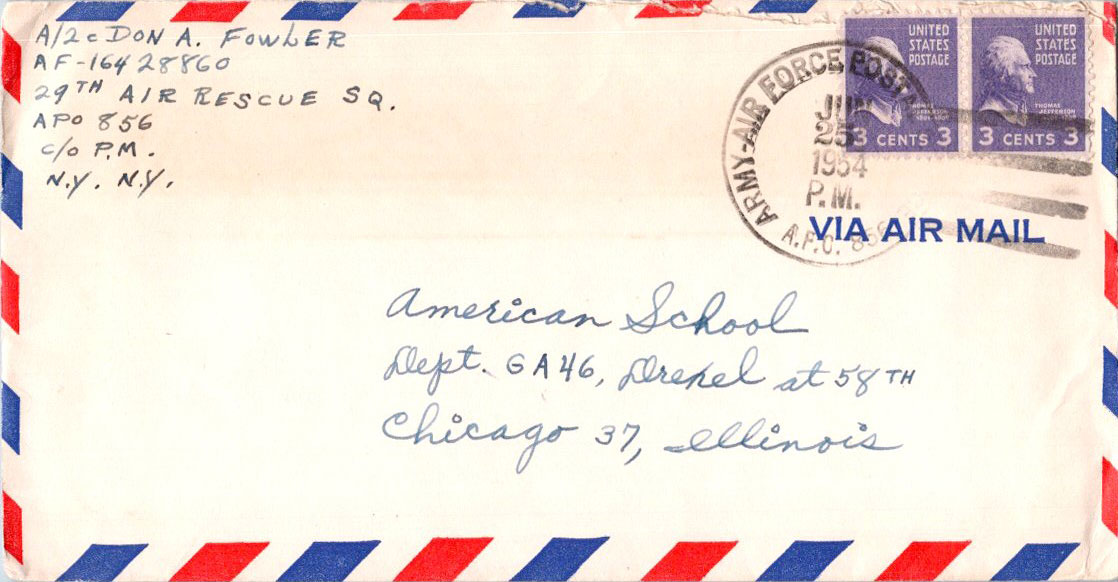 A/2c DON A. FOWLER
AF-16428860
29TH AIR RESCUE SQ.
APO 856
c/o P.M.
N.Y. N.Y.
ARMY-AIR FORCE POSTAL
JUN
25
1954
P.M.
A.P.O. 856
UNITED
STATES
POSTAGE
THOMAS
JEFFERSON
3 CENTS 3
UNITED
STATES
POSTAGE
THOMAS
JEFFERSON
1801-1809
3 CENTS 3
VIA AIR MAIL
American School
Dept. GA46, Drexel at 58TH
Chicago 37, Illinois